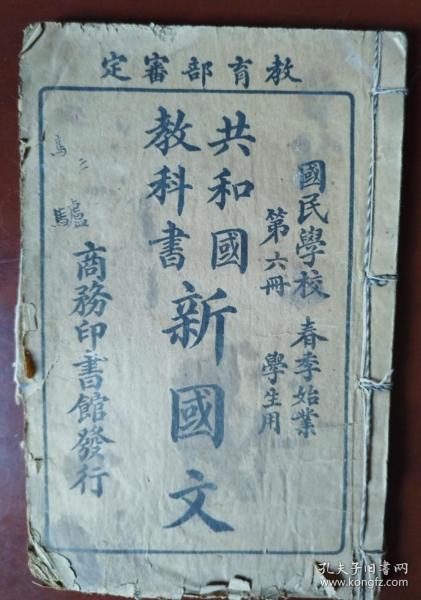 教育部審定
國民學校 春季始業
第六冊 學生用
共和國
教科書
新國文
商務印書館發行
馬二
驢
孔夫子旧书网
www.kongfz.com